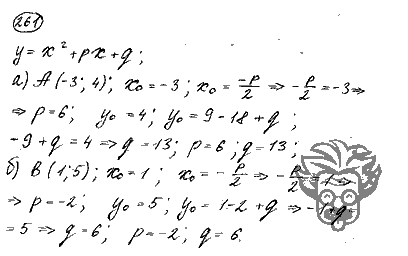 261
y = x² + px + q;
а) A(-3; 4); x₀ = -3; x₀ = -p/2 ⇒ -p/2 = -3 ⇒
⇒ p = 6; y₀ = 4; y₀ = 9 - 18 + q;
-9 + q = 4 ⇒ q = 13; p = 6; q = 13;
б) B(1; 5); x₀ = 1; x₀ = -p/2 ⇒ -p/2 = 1 ⇒
⇒ p = -2; y₀ = 5; y₀ = 1 - 2 + q ⇒ -1 + q
= 5 ⇒ q = 6; p = -2; q = 6.